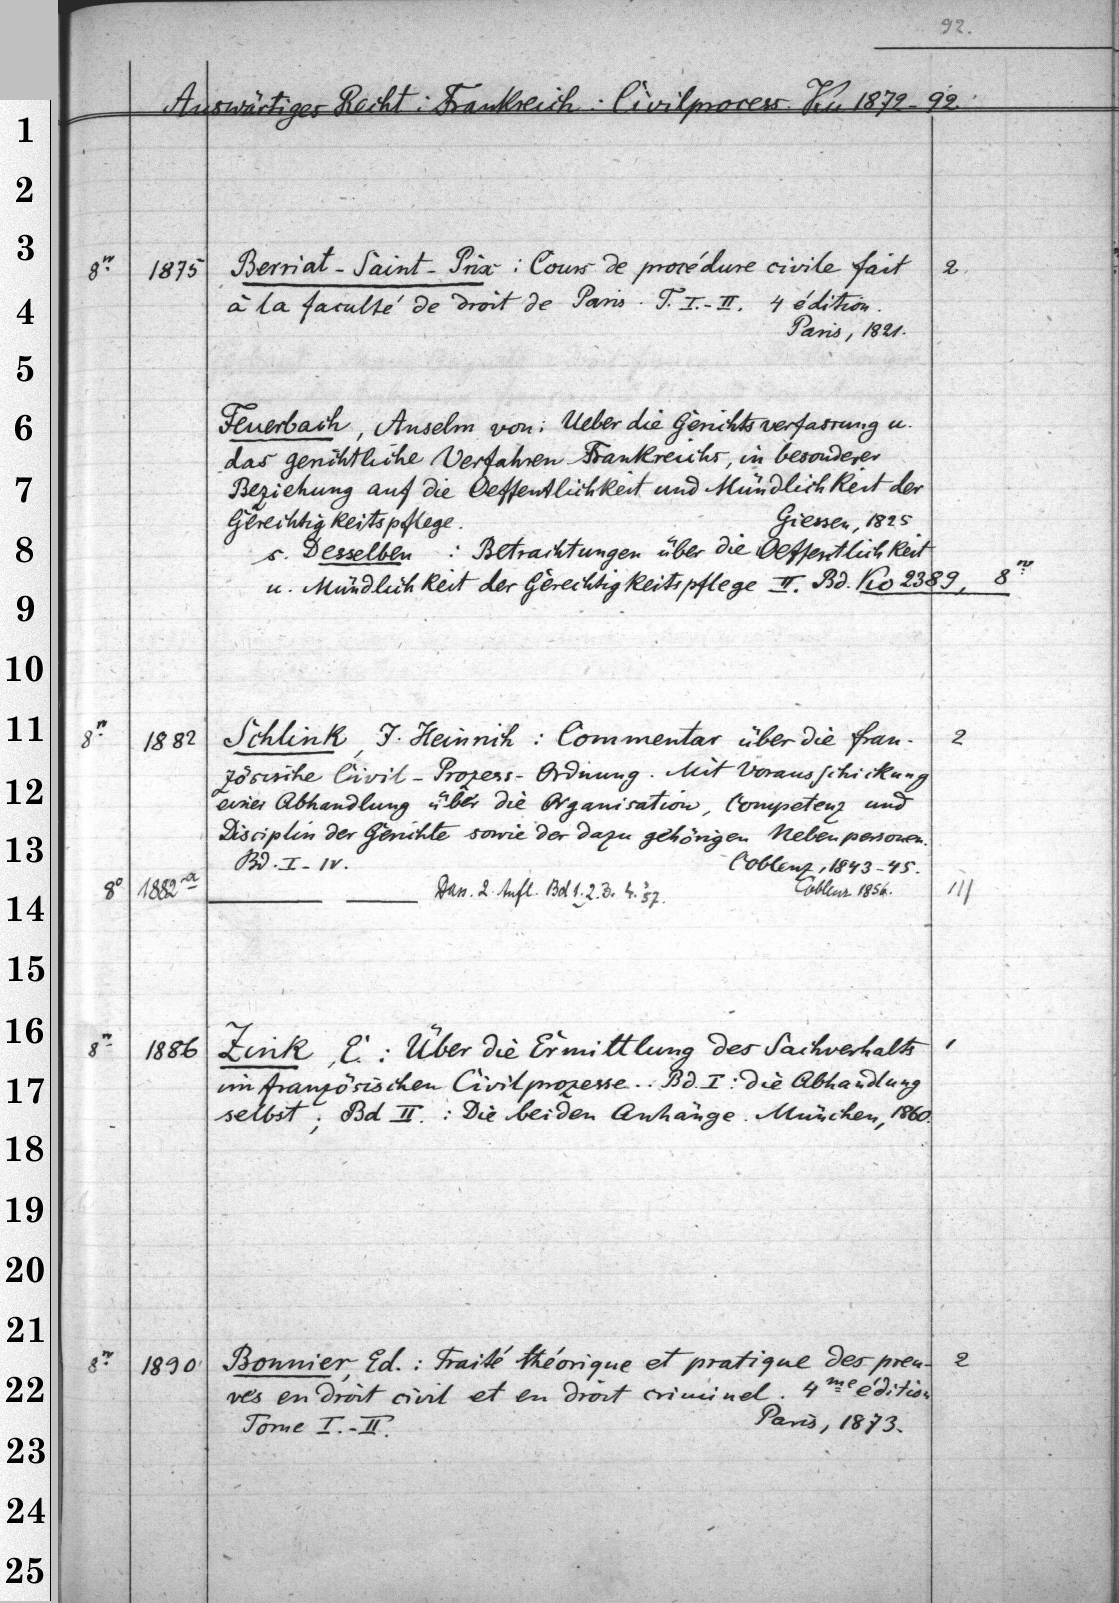 92.
Auswärtiges Recht : Frankreich : Civilprocess. Ku 1872-92.
1
2
3
8° 1875 Berriat-Saint-Prix : Cours de procédure civile fait 2
4 à la faculté de droit de Paris. T. I.-II. 4 édition.
Paris, 1821.
5
6 Feuerbach, Anselm von : Ueber die Gerichtsverfassung u.
das gerichtliche Verfahren Frankreichs, in besonderer
7 Beziehung auf die Oeffentlichkeit und Mündlichkeit der
Gerechtigkeitspflege. Giessen, 1825
8 s. Desselben : Betrachtungen über die Oeffentlichkeit
u. Mündlichkeit der Gerechtigkeitspflege II. Bd. Ko 2389, 8°
9
10
11 8° 1882 Schlink, J. Heinrich : Commentar über die fran- 2
zösische Civil-Prozess-Ordnung. Mit Vorausschickung
12 einer Abhandlung über die Organisation, Competenz und
13 Disciplin der Gerichte sowie der dazu gehörigen Nebenpersonen.
Bd. I-IV. Coblenz, 1843-45.
8° 1882 a Dass. 2. Aufl. Bd 1. 2. 3. 4. 57. Coblenz 1856. III
14
15
16 8° 1886 Zink, E. : Über die Ermittlung des Sachverhalts 1
17 im französischen Civilprozesse.. Bd. I : die Abhandlung
selbst; Bd II. : Die beiden Anhänge. München, 1860.
18
19
20
21
8° 1890 Bonnier, Ed. : Traité théorique et pratique des preu- 2
22 ves en droit civil et en droit criminel. 4me édition
Tome I.-II. Paris, 1873.
23
24
25